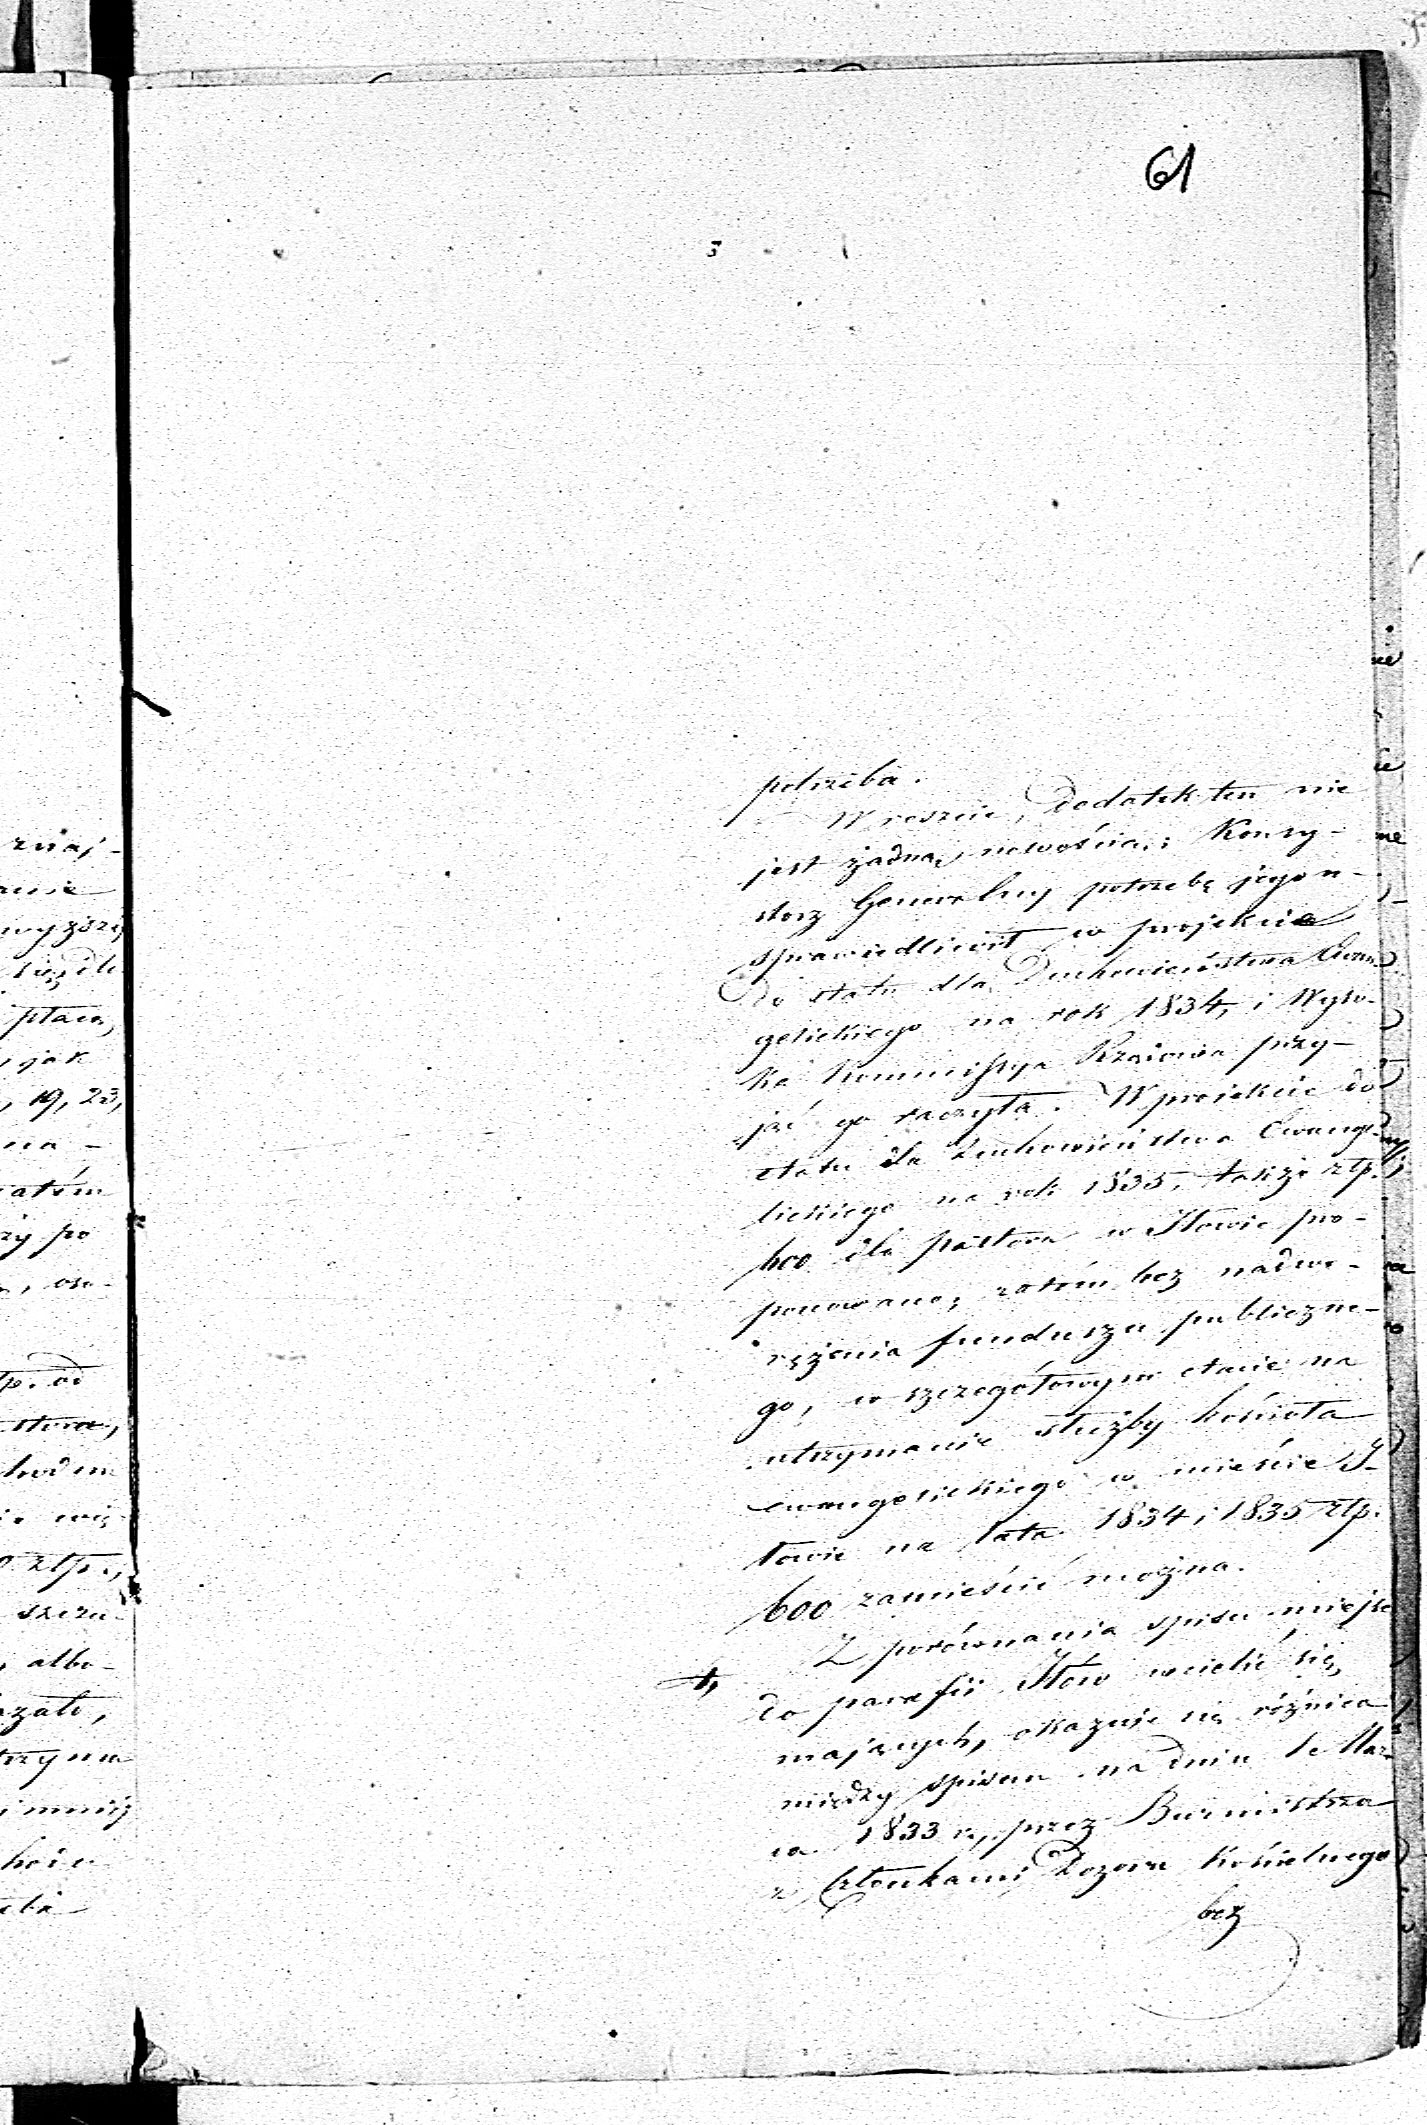 61
potrzeba.
W reszcie, dodatek ten nie
jest żadną nowością; Konsy-
storz Generalny potrzebę jego u-
sprawiedliwił w projekcie
do etatu dla Duchowieństwa Ewan-
gelickiego na rok 1834, i Wyso-
ka Kommissya Rządowa przy-
jąć go raczyła. W projekcie do
etatu dla Duchowieństwa Ewange-
lickiego na rok 1835, także złp.
600 dla pastora w Iłowie pro-
ponowano; zatém bez nadwe-
rężenia funduszu publiczne-
go, w szczegółowym etacie na
utrzymanie służby kościoła
ewangelickiego w mieście I-
łowie na lata 1834 i 1835 złp.
600 zamieścić można.
Z porównania spisu miejsc
do parafii Iłów wcielić się
mających, okazuje się różnica
między spisem na dniu 1e Mar-
ca 1833 r., przez Burmistrza
z Członkami Dozoru Kościelnego
bez
znaj-
wyższéj
płacą,
, jak
, 19, 23,
na -
zatém
rzy po
złp. od
stora,
złp.,
, albo-
trzyma
i mniéj